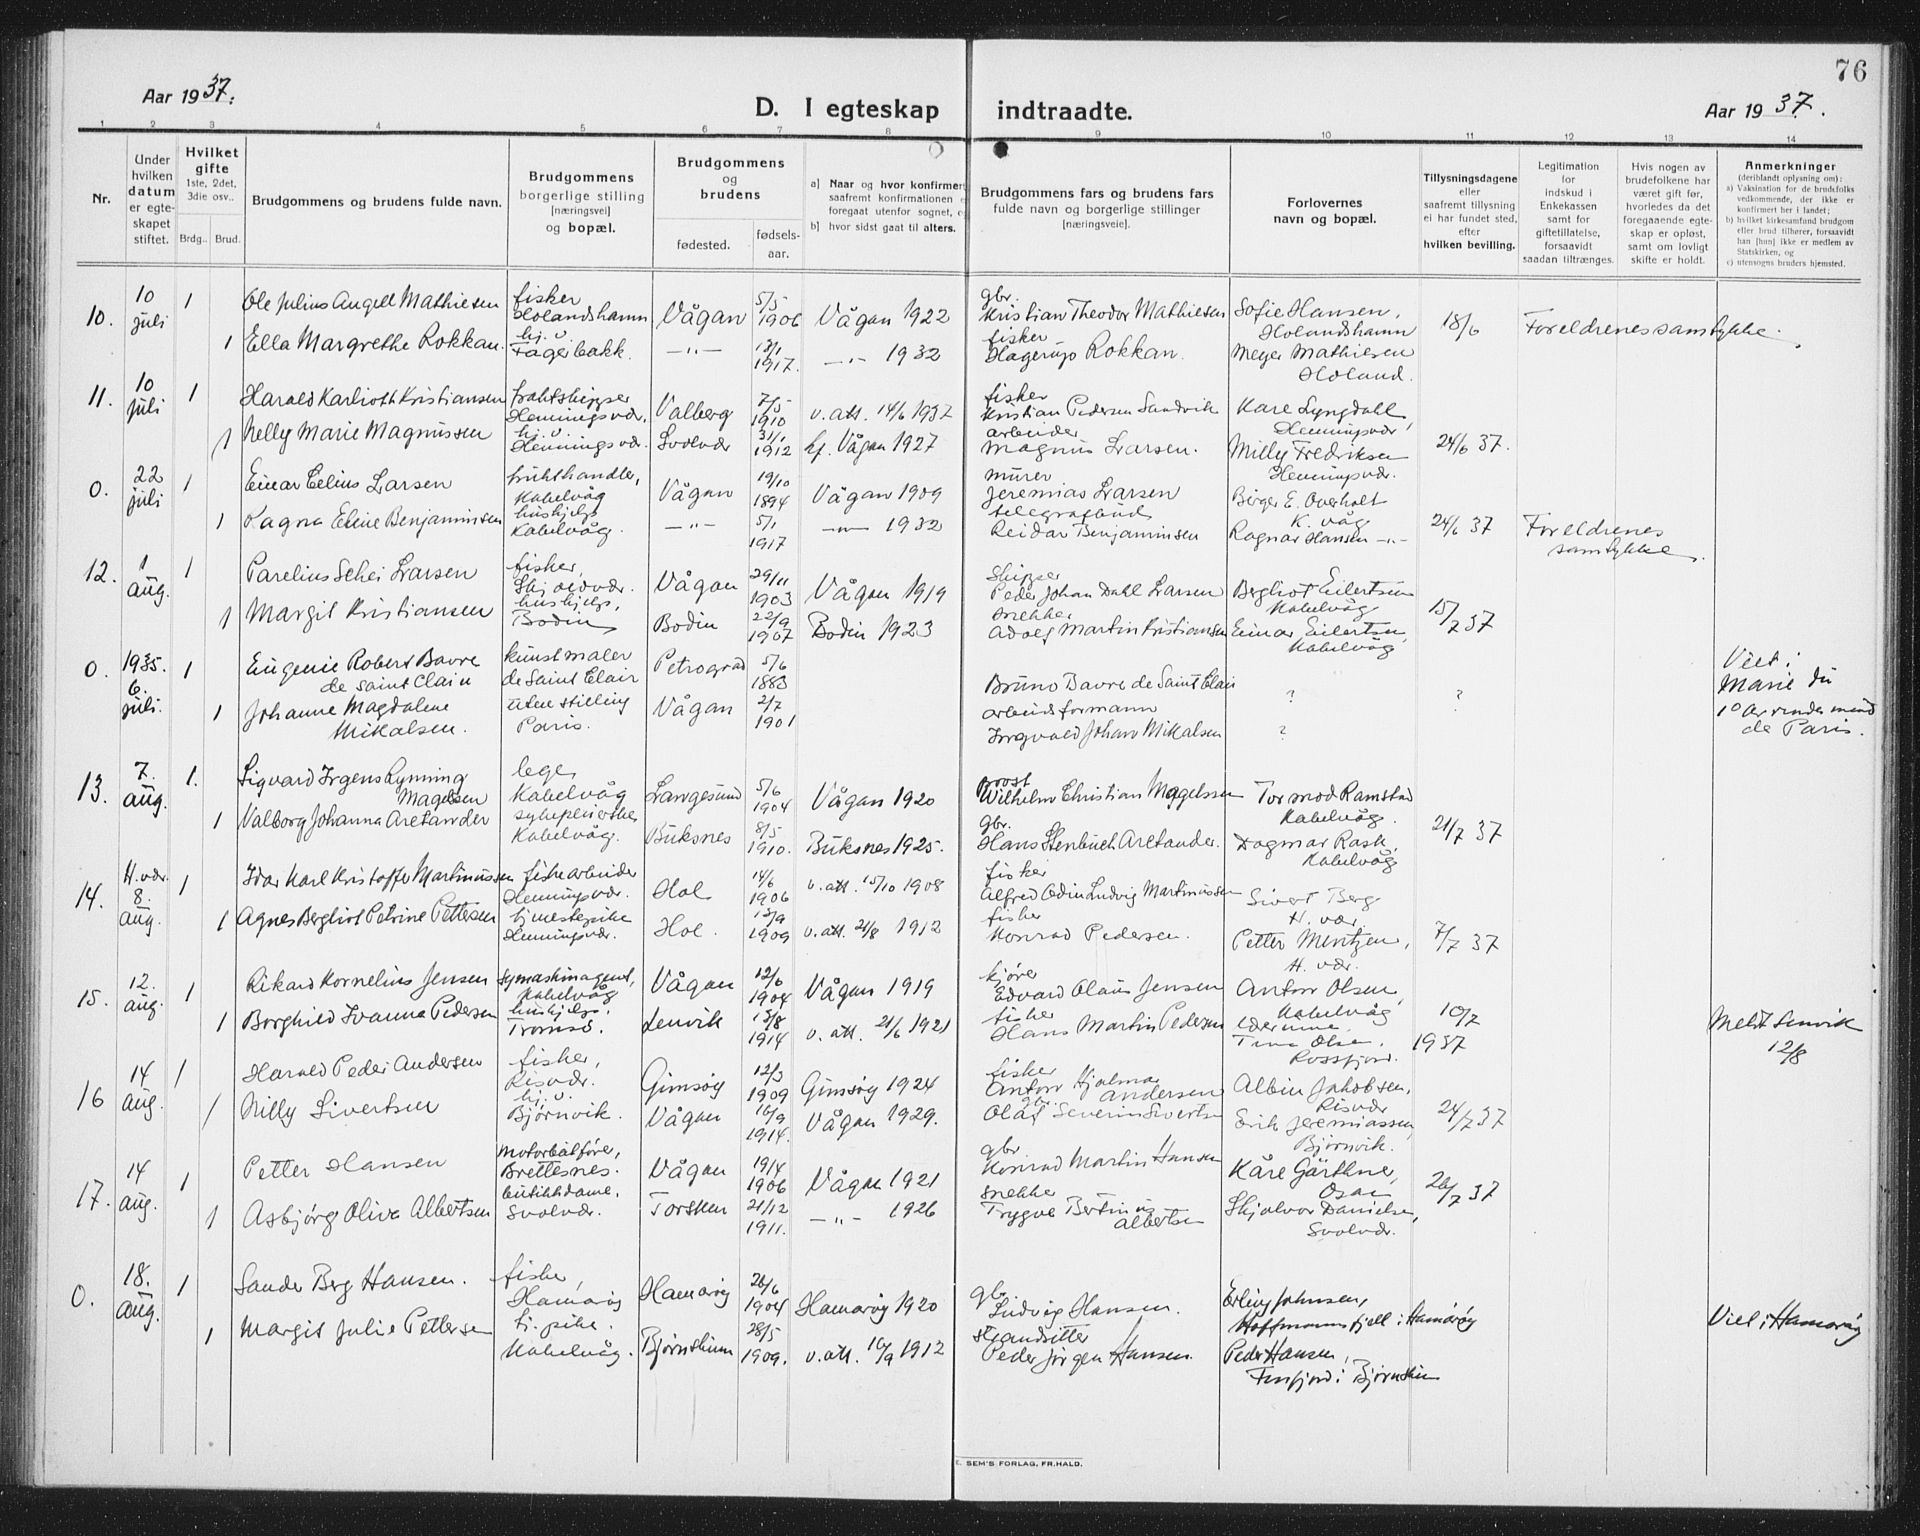 76
Aar 1937.
D. I egteskap indtraadte.
Aar 1937.
1 2 3 4 5 6 7 8 9 10 11 12 13 14
Nr.
Under hvilken datum er egteskapet stiftet.
Hvilket gifte 1ste, 2det, 3die osv..
Brdg.. Brud.
Brudgommens og brudens fulde navn.
Brudgommens borgerlige stilling [næringsvei] og bopæl.
Brudgommens og brudens
fødested.
fødsels-aar.
a] Naar og hvor konfirmert
saafremt konfirmationen e
foregaat utenfor sognet, o
b] hvor sidst gaat til alters.
Brudgommens fars og brudens fars fulde navn og borgerlige stillinger [næringsveie].
Forlovernes navn og bopæl.
Tillysningsdagene eller saafremt tillysning ei har fundet sted, efter hvilken bevilling.
Legitimation for indskud i Enkekassen samt for giftetillatelse, forsaavidt saadan tiltrænges.
Hvis nogen av brudefolkene har været gift før, hvorledes da det foregaaende egteskap er opløst, samt om lovligt skifte er holdt.
Anmerkninger
(deriblandt oplysning om):
a) Vaksination for de brudefolks vedkommende, der ikke er konfirmert her i landet;
b) hvilket kirkesamfund brudgom eller brud tilhører, forsaavidt han [hun] ikke er medlem av Statskirken, og
c) utensogns bruders hjemsted.
10. 10 juli 1 Ole Julius Angell Mathiesen fisker Holandshamn Vågan 5/5 1906 Vågan 1922 gbr. Kristian Theodor Mathiesen Sofie Hansen, Holandshamn 18/6 Foreldrenes samtykke.
1 Ella Margrethe Rokkan. hj. d. Fagerbakk. —"— 13/1 1917. —"— 1932 fisker Hagerup Rokkan. Meyer Mathiesen Holand.
11. 10 juli 1 Harald Karlioth Kristiansen frahtskipper Henningsvær, Valberg 7/5 1910 v. att. 14/6 1937 fisker Kristian Pedersen Sandvik Kåre Lyngdahl Henningsvær,
1 Nelly Marie Magnussen hj. d. Henningsvær. Svolvær 31/1 1912 kf. Vågan 1927 arbeider Magnus Larsen. Milly Fredriksen Henningsvær. 24/6 37.
0. 22 juli 1 Einar Celius Larsen frukthandler, Kabelvåg Vågan 19/10 1894 Vågan 1909 murer Jeremias Larsen Birger E. Overholt K. våg
1 Ragna Eline Benjaminsen hushjelp Kabelvåg. —"— 5/1 1917 —"— 1932 telegrafbud Reidar Benjaminsen Ragnar Hansen —"— 24/6 37 Foreldrenes samtykke.
12. 1 aug. 1 Parelius Schei Larsen fisker, Skjoldvær. Vågan 29/11 1903 Vågan 1919 Skipper Peder Johan Dahl Larsen Bergliot Eilertsen Kabelvåg
1 Margit Kristiansen hushjelp, Bodin Bodin 22/9 1907 Bodin 1923 snekker Adolf Martin Kristiansen Einar Eilertsen, Kabelvåg 15/7 37
0. 1935. 6. juli. 1 Eugenie Robert Bavre de Saint Clair kunstmaler de Saint Clair Petrograd 5/6 1883 Bruno Bavre de Saint Clair ? ? Viet i Marie du 10 Arrondis ment de Paris.
1 Johanne Magdalene Mikalsen. uten stilling Paris. Vågan 2/7 1901 arbeidsformann Ingvald Johan Mikalsen ?
13. 7. aug. 1. Sigvard Irgens Lynning Magelssen lege, Kabelvåg Langesund 5/6 1904 Vågan 1920 prost Wilhelm Christian Magelssen Tormod Ramstad Kabelvåg.
1 Valborg Johanna Aretander sykepleierske Kabelvåg. Buksnes 8/5 1910. Buksnes 1925. gbr. Hans Stenbuch Aretander. Dagmar Rask, Kabelvåg 21/7 37
14. H.vær. 8. aug. 1 Idar Karl Kristoffer Martinussen fiskearbeider Henningsvær. Hol 14/6 1906 v. att. 15/10 1908 fisker Alfred Odin Ludvig Martinussen Sivert Berg H. vær
1 Agnes Bergliot Petrine Pettersen tjenestepike Henningsvær. Hol. 13/9 1909 v. att. 21/8 1912 fisker Konrad Pedersen. Petter Mentzen, H. vær. 7/7 37
15. 12. aug. 1 Rikard Kornelius Jensen symaskinagent, Kabelvåg Vågan 12/6 1904 Vågan 1919 kjører Edvard Olaus Jensen Anton Olsen, Kabelvåg 10/7 1937
1 Borghild Ivanna Pedersen hushjelp. Tromsø. Lenvik 13/8 1914 v. att. 21/6 1921 fisker Hans Martin Pedersen lærerinne Tina Olsen, Rossfjord. Meldt Lenvik 12/8
16 14 aug. 1 Harald Peder Andersen fisker, Risvær. Gimsøy 12/3 1909 Gimsøy 1924 fisker Anton Hjalmar Andersen Albin Jakobsen, Risvær
1 Nilly Sivertsen hj. d. Bjørnvik. Vågan 16/9 1914. Vågan 1929. gbr. Olaf Severin Sivertsen Erik Jeremiassen, Bjørnvik. 24/7 37
17. 14 aug. 1 Petter Hansen motorbåtfører, Brettesnes. Vågan 19/4 1906 Vågan 1921 gbr Konrad Martin Hansen Kåre Gärthner, Osan 26/7 37
1 Asbjørg Olive Albertsen butikkdame, Svolvær. Torsken 21/12 1911. —"— 1926 snekker Trygve Bertinus Albertsen Skjalvor Danielsen, Svolvær.
0. 18. aug. 1 Sander Berg Hansen. fisker, Hamarøy Hamarøy 26/6 1904 Hamarøy 1920 gbr. Ludvig Hansen. Erling Johnsen, Hoffmannsfjell i Hamarøy Viet i Hamarøy
1 Margit Julie Pettersen tj. pike. Kabelvåg. Bjørnskinn 28/5 1909. v. att. 10/9 1912 strandsitter Peder Jørgen Hansen. Peder Hansen, i Bjørnskinn
E. SEM'S FORLAG, FR.HALD.